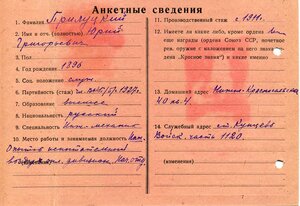 Анкетные сведения
1. Фамилия Прилуцкий
2. Имя и отч. (полностью) Юрий
Григорьевич
3. Пол
4. Год рождения 1896
5. Соц. положение служ.
6. Партийность (стаж) 1927г.
7. Образование высшее
8. Национальность русский
9. Специальность Инж. механик
10. Место работы и занимаемая должность Нач.
11. Производственный стаж с 1911г.
12. Имеете ли какие-либо, кроме ордена
награды (ордена Союза ССР, почетное
рев. оружие с наложением на него знака
ордена „Красное знамя" и какие именно)
13. Домашний адрес
40 кв. 4
14. Служебный адрес ст. Кунцево
Войск. часть 1120.
(изменения)
7